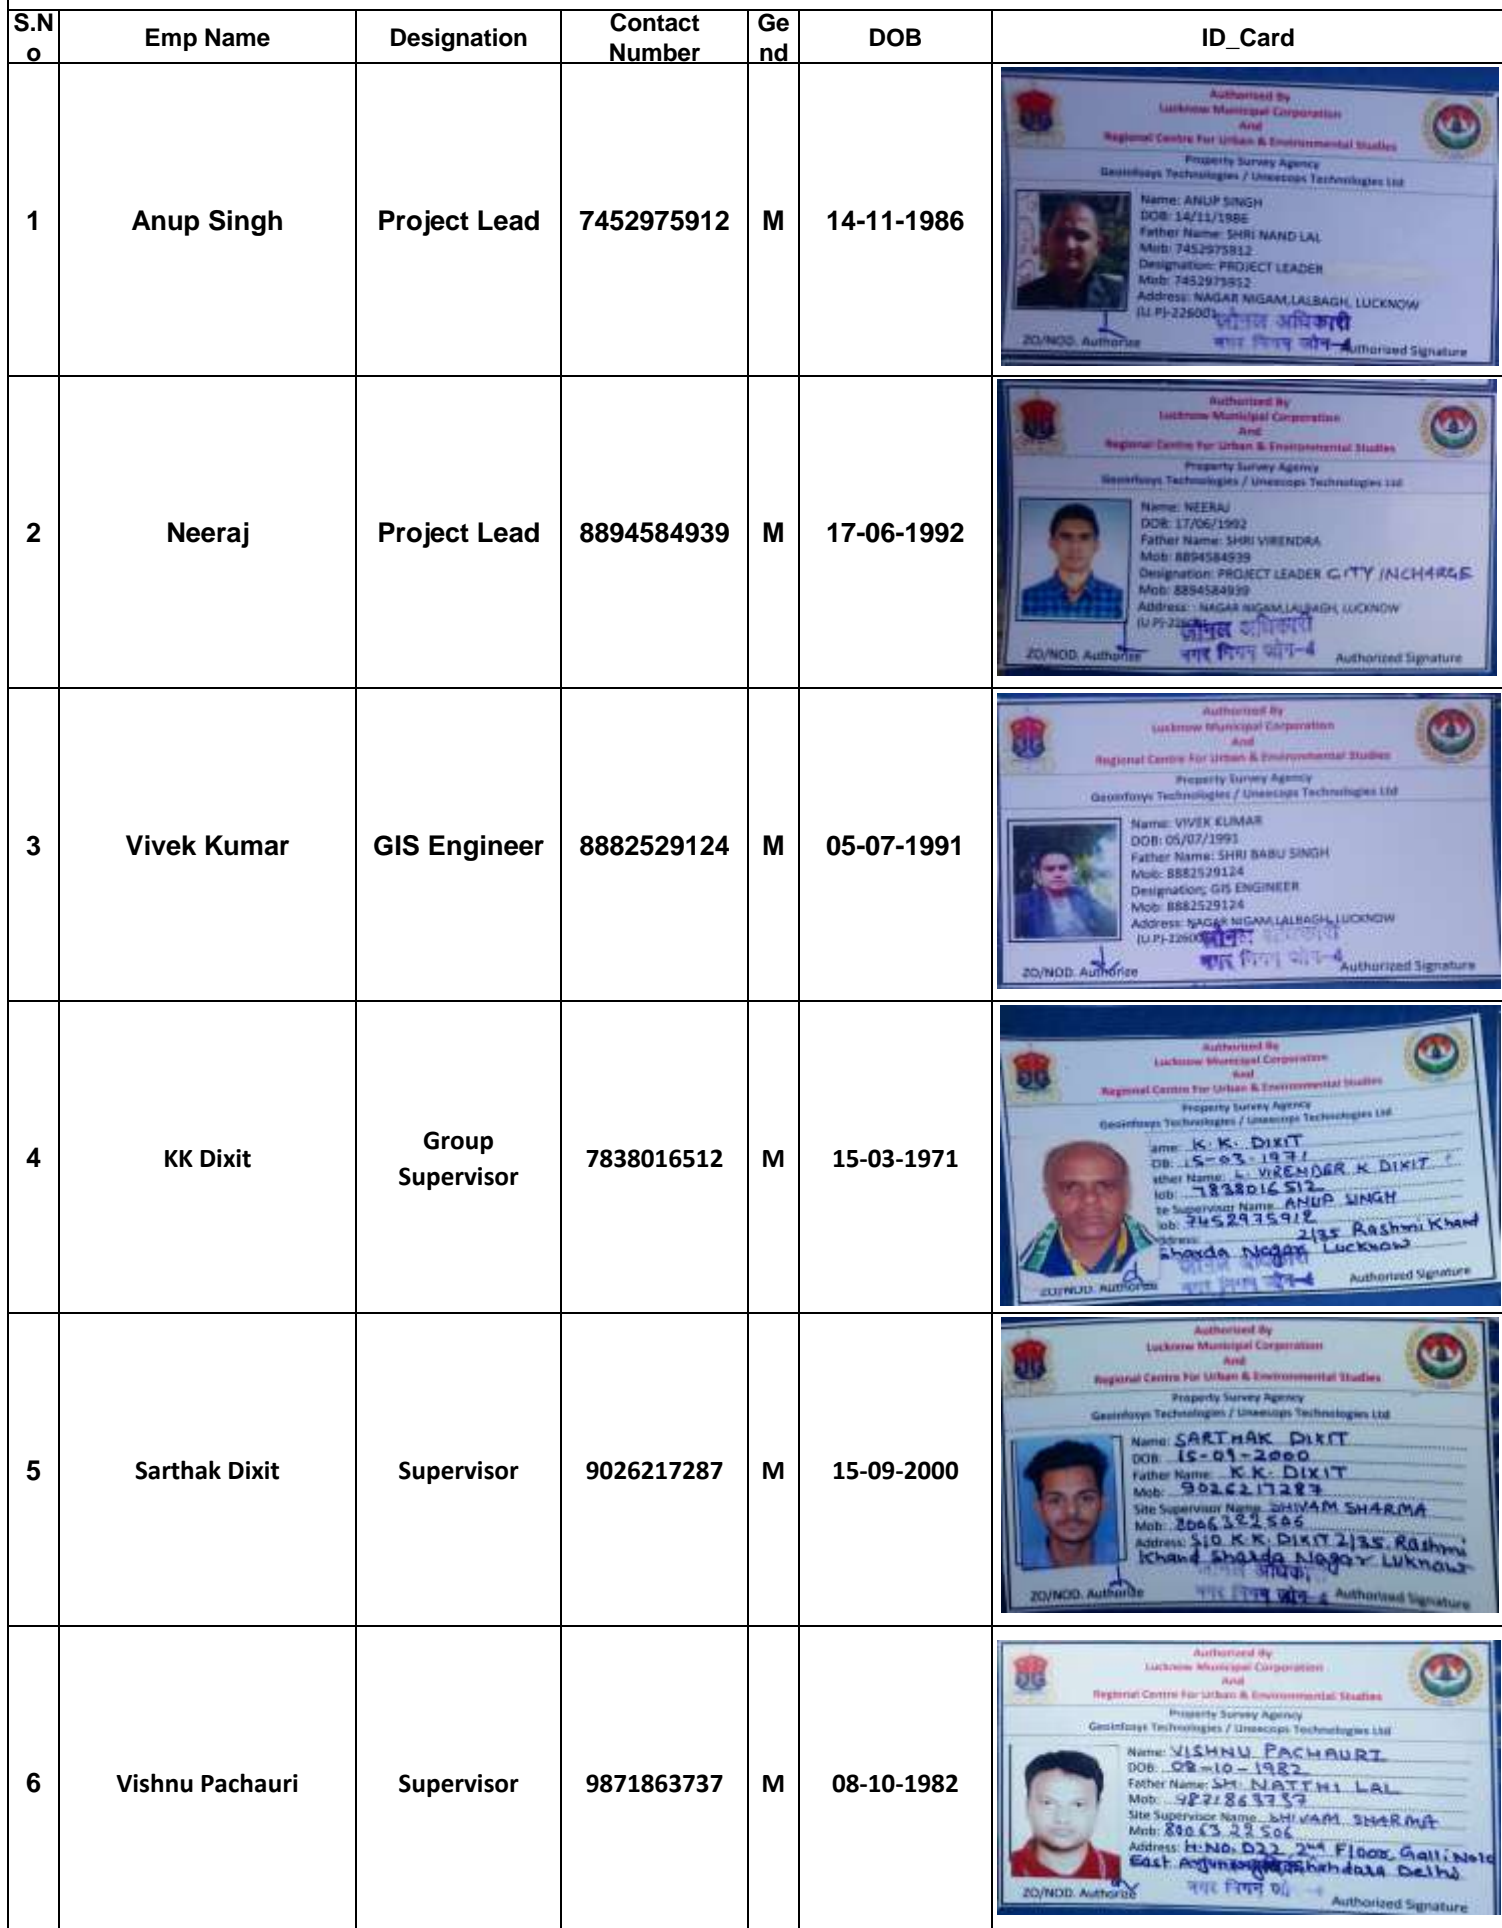 S.No Emp Name Designation Contact Number Gend DOB ID_Card
1 Anup Singh Project Lead 7452975912 M 14-11-1986
Authorised By
Lucknow Municipal Corporation
And
Regional Centre For Urban & Environmental Studies
Property Survey Agency
Geoinfosys Technologies / Uneecops Technologies Ltd
Name: ANUP SINGH
DOB: 14/11/1986
Father Name: SHRI NAND LAL
Mob: 7452975912
Designation: PROJECT LEADER
Mob: 7452975912
Address: NAGAR NIGAM,LALBAGH, LUCKNOW
(U.P)-226001
जोनल अधिकारी
नगर निगम जोन-4
ZO/NOD. Authorize Authorized Signature
2 Neeraj Project Lead 8894584939 M 17-06-1992
Authorised By
Lucknow Municipal Corporation
And
Regional Centre For Urban & Environmental Studies
Property Survey Agency
Geoinfosys Technologies / Uneecops Technologies Ltd
Name: NEERAJ
DOB: 17/06/1992
Father Name: SHRI VIRENDRA
Mob: 8894584939
Designation: PROJECT LEADER CITY INCHARGE
Mob: 8894584939
Address: : NAGAR NIGAM,LALBAGH, LUCKNOW
जोनल अधिकारी
नगर निगम जोन-4
ZO/NOD. Authorize Authorized Signature
3 Vivek Kumar GIS Engineer 8882529124 M 05-07-1991
Authorised By
Lucknow Municipal Corporation
And
Regional Centre For Urban & Environmental Studies
Property Survey Agency
Geoinfosys Technologies / Uneecops Technologies Ltd
Name: VIVEK KUMAR
DOB: 05/07/1991
Father Name: SHRI BABU SINGH
Mob: 8882529124
Designation; GIS ENGINEER
Mob: 8882529124
Address: NAGAR NIGAM,LALBAGH, LUCKNOW
जोनल अधिकारी
नगर निगम जोन-4
ZO/NOD. Authorize Authorized Signature
4 KK Dixit Group Supervisor 7838016512 M 15-03-1971
Authorised By
Lucknow Municipal Corporation
And
Regional Centre For Urban & Environmental Studies
Property Survey Agency
Geoinfosys Technologies / Uneecops Technologies Ltd
ame: K. K. DIXIT
OB: 15-03-1971
ather Name: L. VIRENDER K DIXIT
lob: 7838016512
te Supervisor Name ANUP SINGH
ob: 7452975912
ddress: 2/35 Rashmi Khand
Sharda Nagar Lucknow
जोनल अधिकारी
नगर निगम जोन-4
ZO/NOD. Authorize Authorized Signature
5 Sarthak Dixit Supervisor 9026217287 M 15-09-2000
Authorised By
Lucknow Municipal Corporation
And
Regional Centre For Urban & Environmental Studies
Property Survey Agency
Geoinfosys Technologies / Uneecops Technologies Ltd
Name: SARTHAK DIXIT
DOB: 15-09-2000
Father Name: K.K. DIXIT
Mob: 9026217287
Site Supervisor Name SHIVAM SHARMA
Mob: 8006322506
Address: S/O K.K. DIXIT 2/35, Rashmi
Khand Sharda Nagar Luknow
नगर निगम जोन-4
ZO/NOD. Authorize Authorized Signature
6 Vishnu Pachauri Supervisor 9871863737 M 08-10-1982
Authorised By
Lucknow Municipal Corporation
And
Regional Centre For Urban & Environmental Studies
Property Survey Agency
Geoinfosys Technologies / Uneecops Technologies Ltd
Name: VISHNU PACHAURI
DOB: 08-10-1982
Father Name: SH. NATTHI LAL
Mob: 9871863737
Site Supervisor Name SHIVAM SHARMA
Mob: 8006322506
Address: H.NO. D22 2nd Floor, Galli No
East Shahdara Delhi
नगर निगम
ZO/NOD. Authorize Authorized Signature